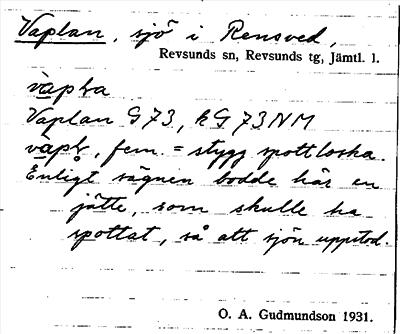 Vaplan, sjö i Rensved,
Revsunds sn, Revsunds tg, Jämtl. l.
Vaplan G 73, k G 73 NM
fem. = stygg spottloska.
Enligt sägnen bodde här en
jätte, som skulle ha
spottat, så att sjön uppstod.
O. A. Gudmundson 1931.